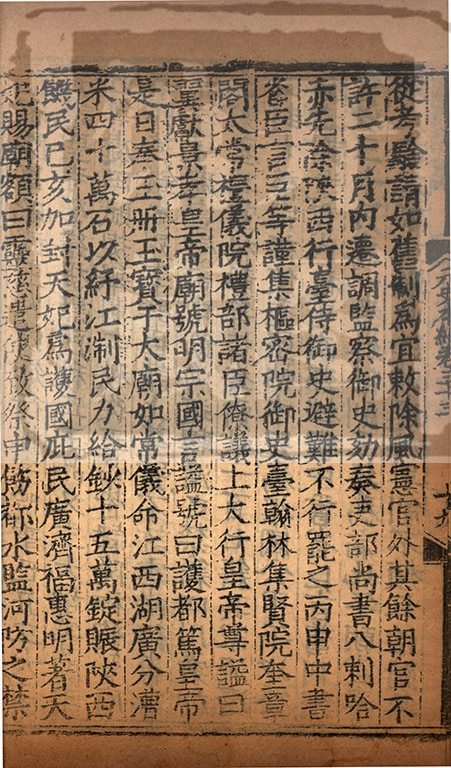 從考驗請如舊制為宜敕除風憲官外其餘朝官不
許二十月內遷調監察御史劾奏吏部尚書八剌哈
赤先除陝西行臺侍御史避難不行罷之丙申中書
省臣言臣等謹集樞密院御史臺翰林集賢院奎章
閣太常禮儀院禮部諸臣僚議上大行皇帝尊謚曰
翼獻景孝皇帝廟號明宗國言謚號曰護都篤皇帝
是日奉玉冊玉寶于太廟如常儀命江西湖廣分漕
米四十萬石以紓江淛民力給鈔十五萬錠賑陝西
饑民己亥加封天妃為護國庇民廣濟福惠明著天
妃賜廟額曰靈慈遣使致祭申飭都水監河防之禁